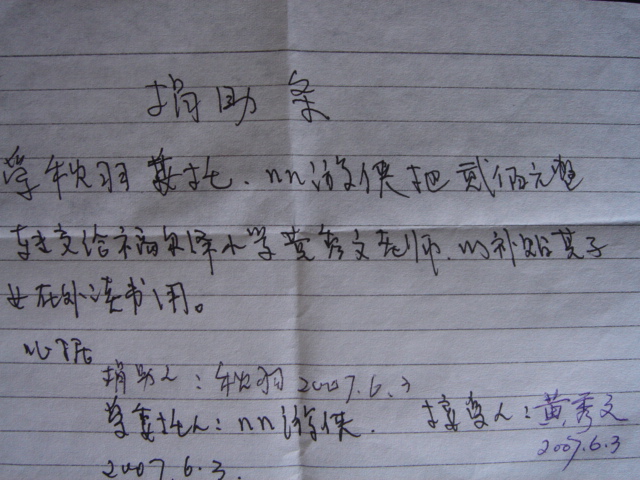 捐助条
受秋羽委托.nn游侠把贰佰元整
转交给福泉小学黄秀文老师.以补贴其子
女在外读书用。
此据
捐助人：秋羽 2007.6.3
受委托人：nn游侠. 接受人：黄秀文
2007.6.3. 2007.6.3